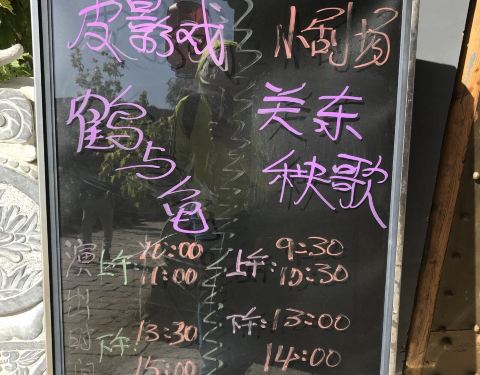 皮影戏
鹤与龟
演出时间
上午: 10:00
11:00
下午: 13:30
15:00
小剧场
关东
秧歌
上午: 9:30
10:30
下午: 13:00
14:00